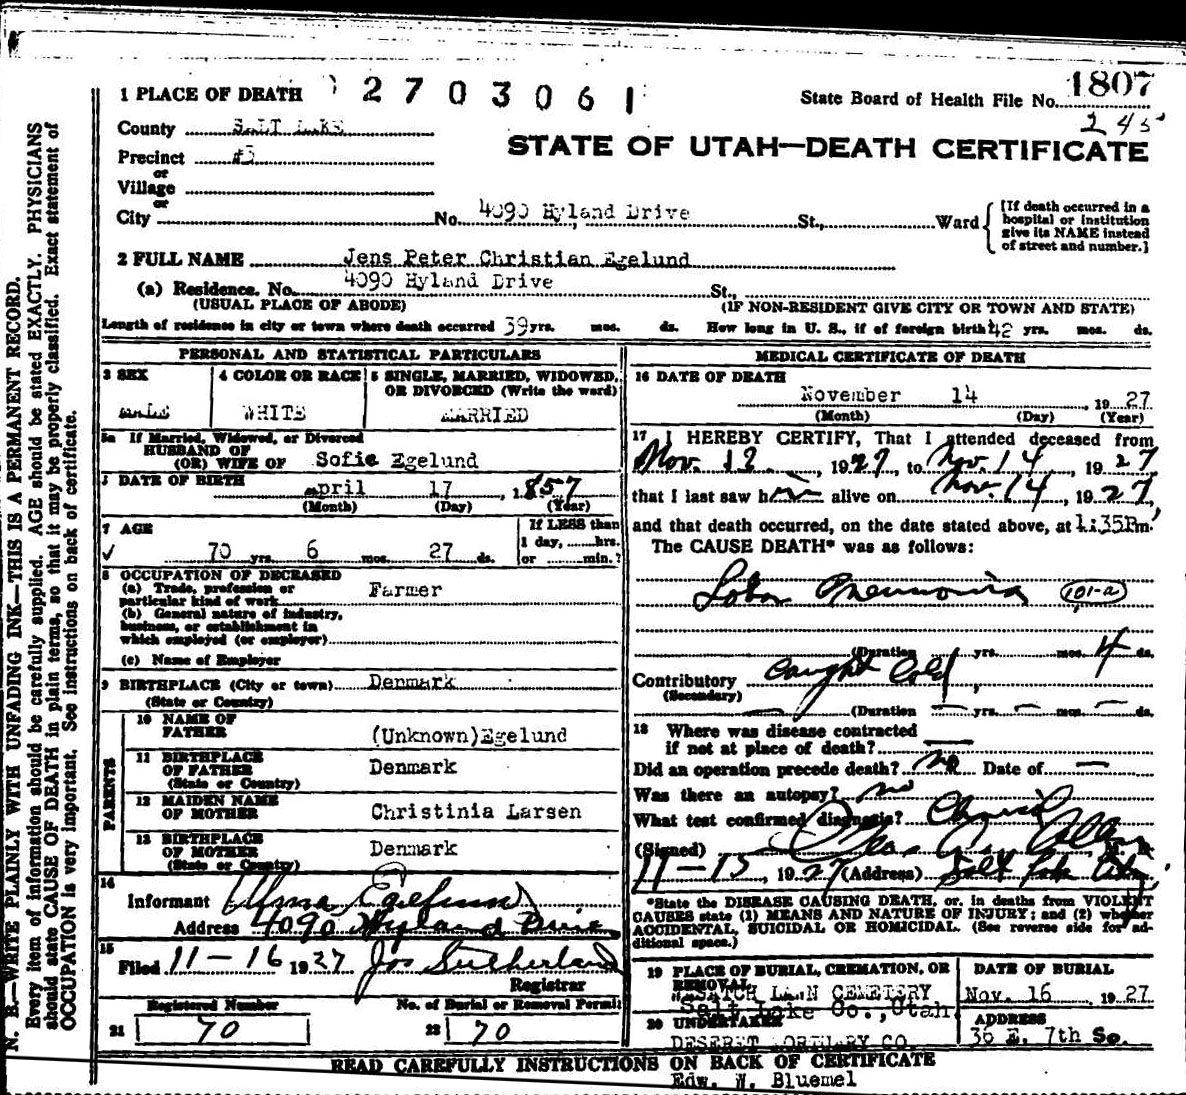 1807
1 PLACE OF DEATH 2703061 State Board of Health File No.
245
County SALT LAKE
STATE OF UTAH—DEATH CERTIFICATE
Precinct #3
or
Village
or
City No. 4090 Hyland Drive St., Ward [If death occurred in a hospital or institution give its NAME instead of street and number.]
2 FULL NAME Jens Peter Christian Egelund
(a) Residence. No. 4090 Hyland Drive St.,
(USUAL PLACE OF ABODE) (IF NON-RESIDENT GIVE CITY OR TOWN AND STATE)
Length of residence in city or town where death occurred 39 yrs. mos. ds. How long in U. S., if of foreign birth? 42 yrs. mos. ds.
PERSONAL AND STATISTICAL PARTICULARS
3 SEX 4 COLOR OR RACE 5 SINGLE, MARRIED, WIDOWED, OR DIVORCED (Write the word)
MALE WHITE MARRIED
5a If Married, Widowed, or Divorced
HUSBAND OF
(OR) WIFE OF Sofie Egelund
DATE OF BIRTH April 17, 1857
(Month) (Day) (Year)
7 AGE If LESS than
1 day, hrs.
70 yrs. 6 mos. 27 ds. or min.?
8 OCCUPATION OF DECEASED
(a) Trade, profession or
particular kind of work Farmer
(b) General nature of industry,
business, or establishment in
which employed (or employer)
(c) Name of Employer
9 BIRTHPLACE (City or town) Denmark
(State or Country)
PARENTS
10 NAME OF
FATHER (Unknown) Egelund
11 BIRTHPLACE
OF FATHER Denmark
(State or Country)
12 MAIDEN NAME
OF MOTHER Christinia Larsen
13 BIRTHPLACE
OF MOTHER Denmark
(State or Country)
14
Informant Egelund
Address 4090 Hyland Drive
15
Filed 11-16 1927 Jos Sutherland
Registrar
Registered Number No. of Burial or Removal Permit
21 70 22 70
MEDICAL CERTIFICATE OF DEATH
16 DATE OF DEATH
November 14, 1927
(Month) (Day) (Year)
17 I HEREBY CERTIFY, That I attended deceased from
Nov. 12, 1927, to Nov. 14, 1927,
that I last saw him alive on Nov. 14, 1927,
and that death occurred, on the date stated above, at 1:35Pm.
The CAUSE DEATH* was as follows:
Lobar Pneumonia 101-a
(Duration yrs. mos. 4 ds.
Contributory Caught Cold,
(Secondary)
(Duration — yrs. — mos. — ds.
18 Where was disease contracted
if not at place of death? —
Did an operation precede death? no Date of —
Was there an autopsy? no
What test confirmed diagnosis?
(Signed) M. D.
11-15, 1927 (Address) Salt Lake City
*State the DISEASE CAUSING DEATH, or, in deaths from VIOLENT
CAUSES state (1) MEANS AND NATURE OF INJURY; and (2) whether
ACCIDENTAL, SUICIDAL OR HOMICIDAL. (See reverse side for ad-
ditional space.)
19 PLACE OF BURIAL, CREMATION, OR REMOVAL DATE OF BURIAL
WASATCH LAWN CEMETERY Nov. 16 1927
Salt Lake Co., Utah
20 UNDERTAKER ADDRESS
DESERET MORTUARY CO. 36 E. 7th So.
READ CAREFULLY INSTRUCTIONS ON BACK OF CERTIFICATE
Edw. W. Bluemel
N. B.—WRITE PLAINLY WITH UNFADING INK—THIS IS A PERMANENT RECORD.
Every item of information should be carefully supplied. AGE should be stated EXACTLY. PHYSICIANS
should state CAUSE OF DEATH in plain terms, so that it may be properly classified. Exact statement of
OCCUPATION is very important. See instructions on back of certificate.